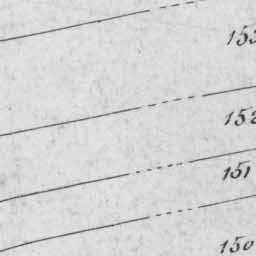 153
152
151
150